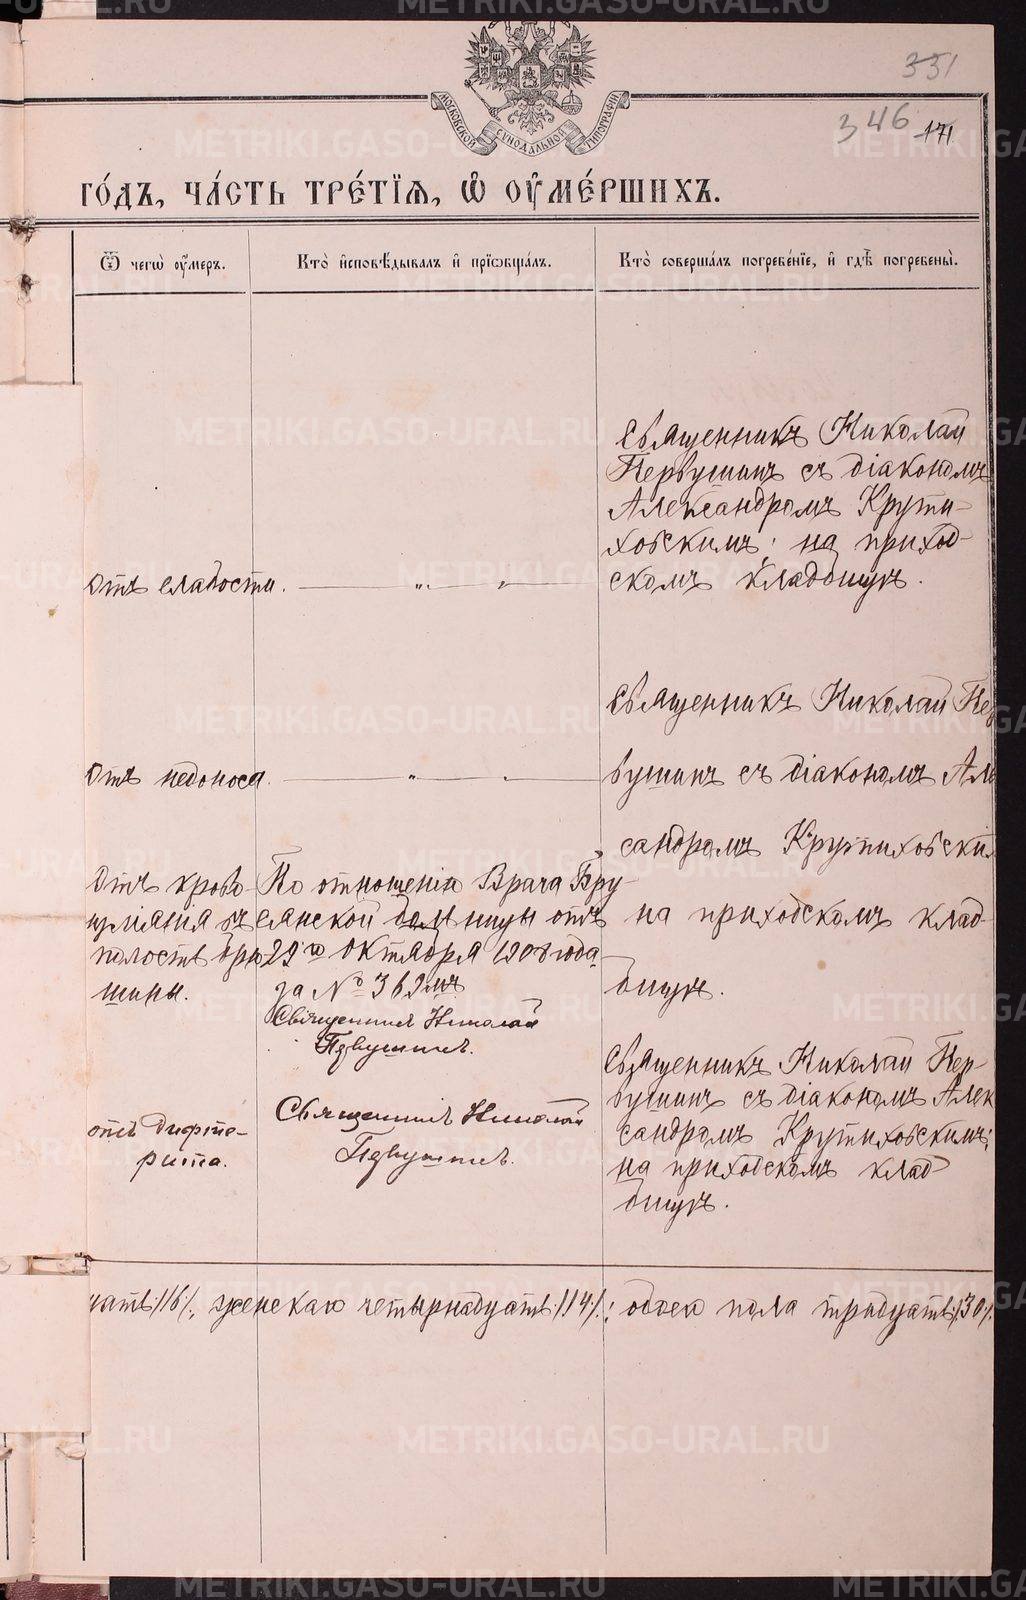 METRIKI.GASO-URAL.RU
351
346
171
МОСКОВСКОЙ СѴНОДАЛЬНОЙ ТИПОГРАФІИ
го́дъ, ча́сть тре́тїѧ, ѡ҆ ᲂу҆ме́ршихъ.
Ѿ чегѡ̀ ᲂу҆́меръ.
Кто̀ и҆сповѣ́дывалъ и҆ прїѡбща́лъ.
Кто̀ соверша́лъ погребе́нїе, и҆ гдѣ̀ погребены̀.
Священникъ Николай
Первушинъ съ діакономъ
Александромъ Крути-
ховскимъ; на приход-
скомъ кладбищѣ.
отъ слабости.
Священникъ Николай Пер
вушинъ съ діакономъ Алек
сандромъ Крутиховски
на приходскомъ клад-
бищѣ.
отъ недоноса.
Отъ крово-
изліянія въ
полость брю
шины.
По отношенію Врача Бру-
сянской больницы отъ
29го Октября 1908 года
за № 369мъ
Священникъ Николай
Первушинъ.
отъ дифте-
рита.
Священникъ Николай
Первушинъ.
Священникъ Николай Пер-
вушинъ съ діакономъ Алек
сандромъ Крутиховскимъ;
на приходскомъ клад
бищѣ.
цать /16/, женскаго четырнадцать /14/; обоего пола тридцать /30/.